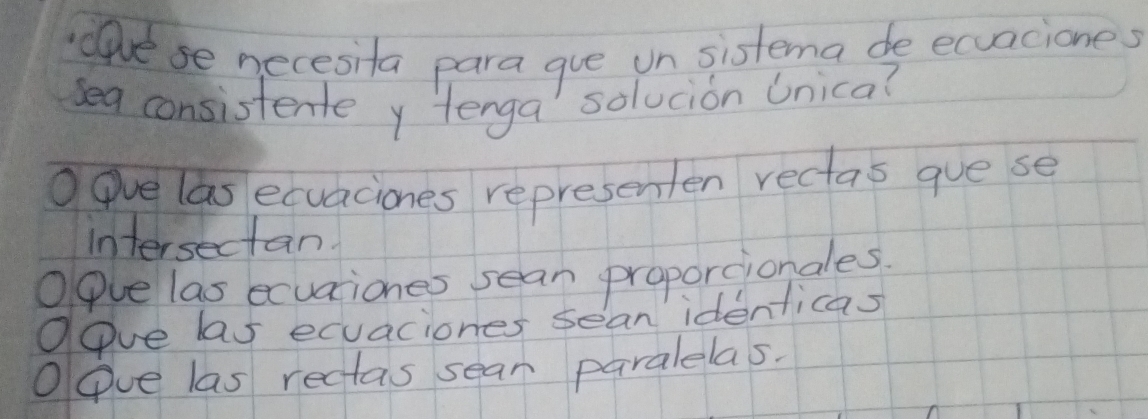 ·¿Qué se necesita para que un sistema de ecuaciones
sea consistente y tenga solución única?
O Que las ecuaciones representen rectas que se
intersectan.
O Que las ecuaciones sean proporcionales.
O Que las ecuaciones sean idénticas
O Que las rectas sean paralelas.